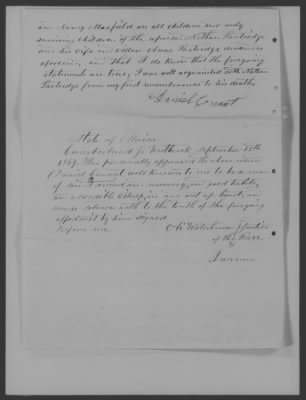 are Nancy Maxfield are all children and only
surviving children of the aforesaid Nathan Partridge
and his wife
aforesaid, and that I do know that the foregoing
statements are true, I was well acquainted with Nathan
Partridge from my first remembrance to his death,
Daniel Conant
State of Maine
Cumberland ss Westbrook, September 15th
1849. Then personally appeared the above named
Daniel Conant well known to me to be a man
of sound mind and memory, and good habits,
and a credible
made solemn oath to the truth of the foregoing
affidavit by him signed
before me
of the Peace